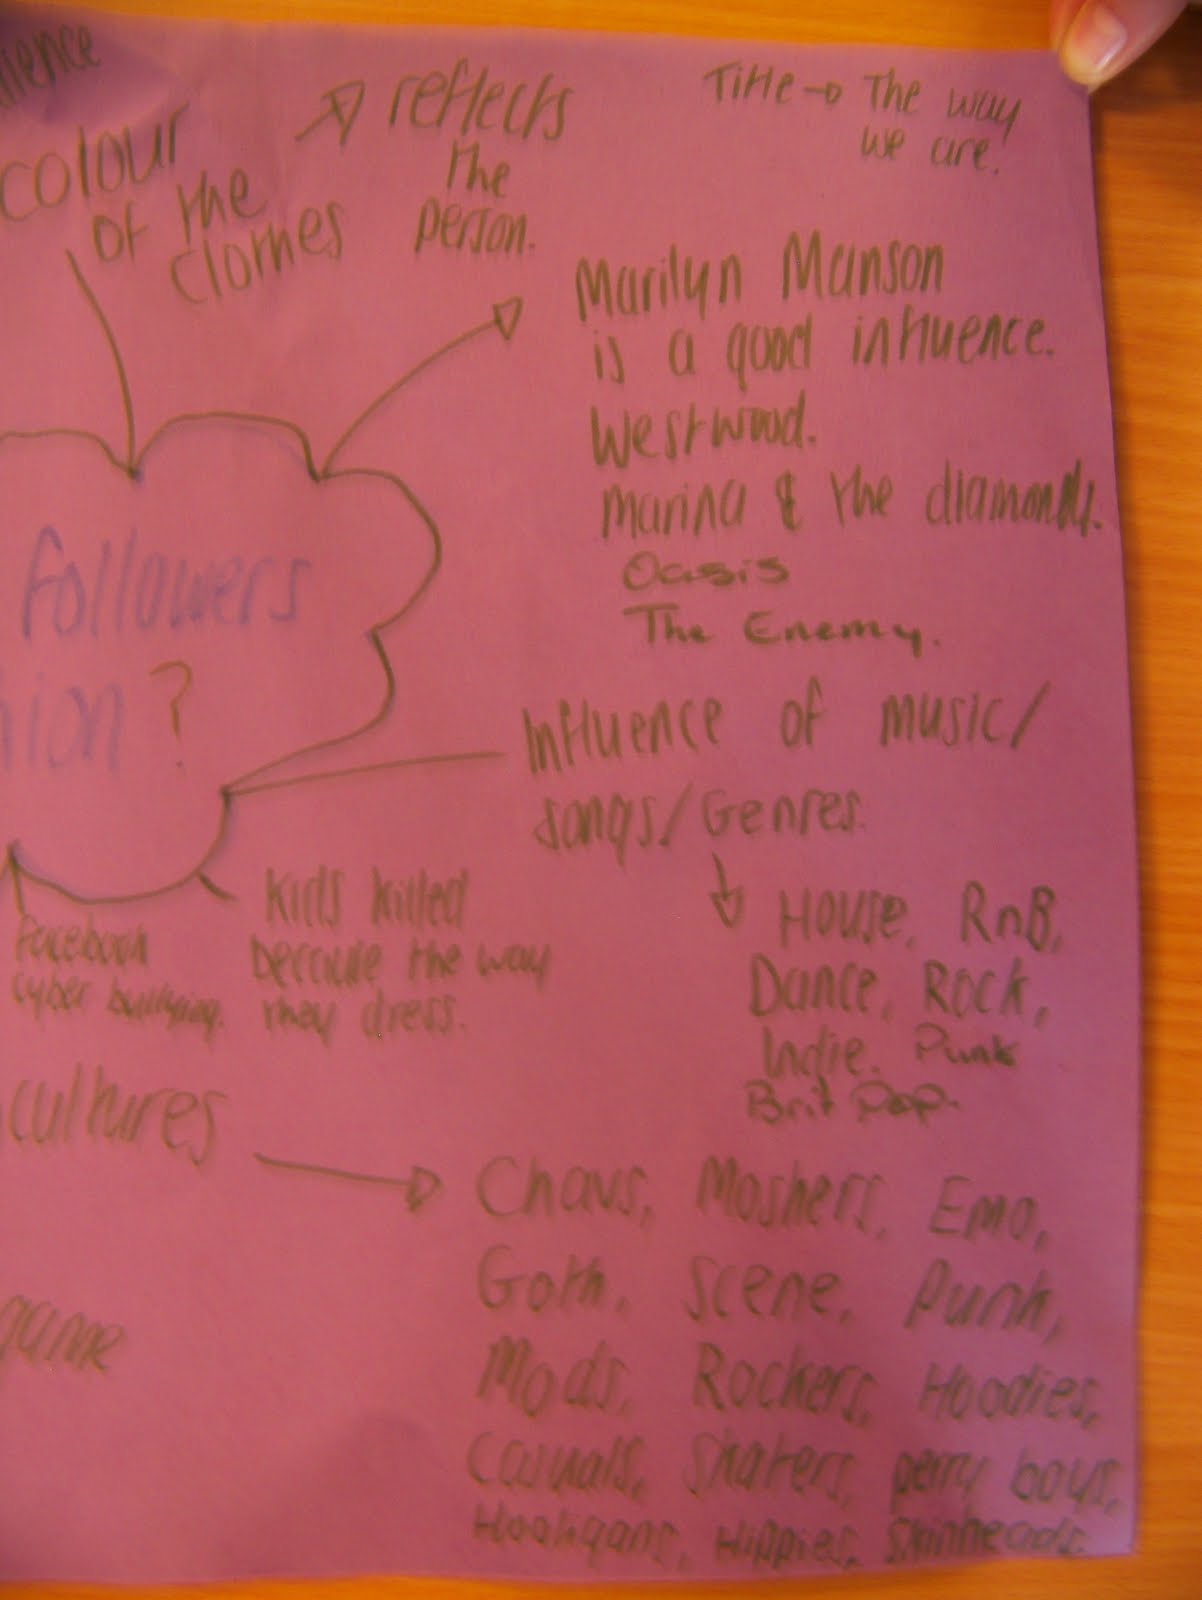 Title → The way
we are.
colour
of the
clothes
reflects
the
person.
Marilyn Manson
is a good influence.
Westwood.
Marina & the diamonds.
Oasis
The Enemy.
Followers
?
Influence of music/
songs/Genres.
House, RnB,
Dance, Rock,
Indie. Punk
Brit Pop.
Kids killed
because the way
they dress.
Facebook
cyber bullying.
cultures
Chavs, Moshers, Emo,
Goth, Scene, Punk,
Mods, Rockers, Hoodies,
Casuals, Skaters, perry boys,
Hooligans, Hippies, Skinheads.